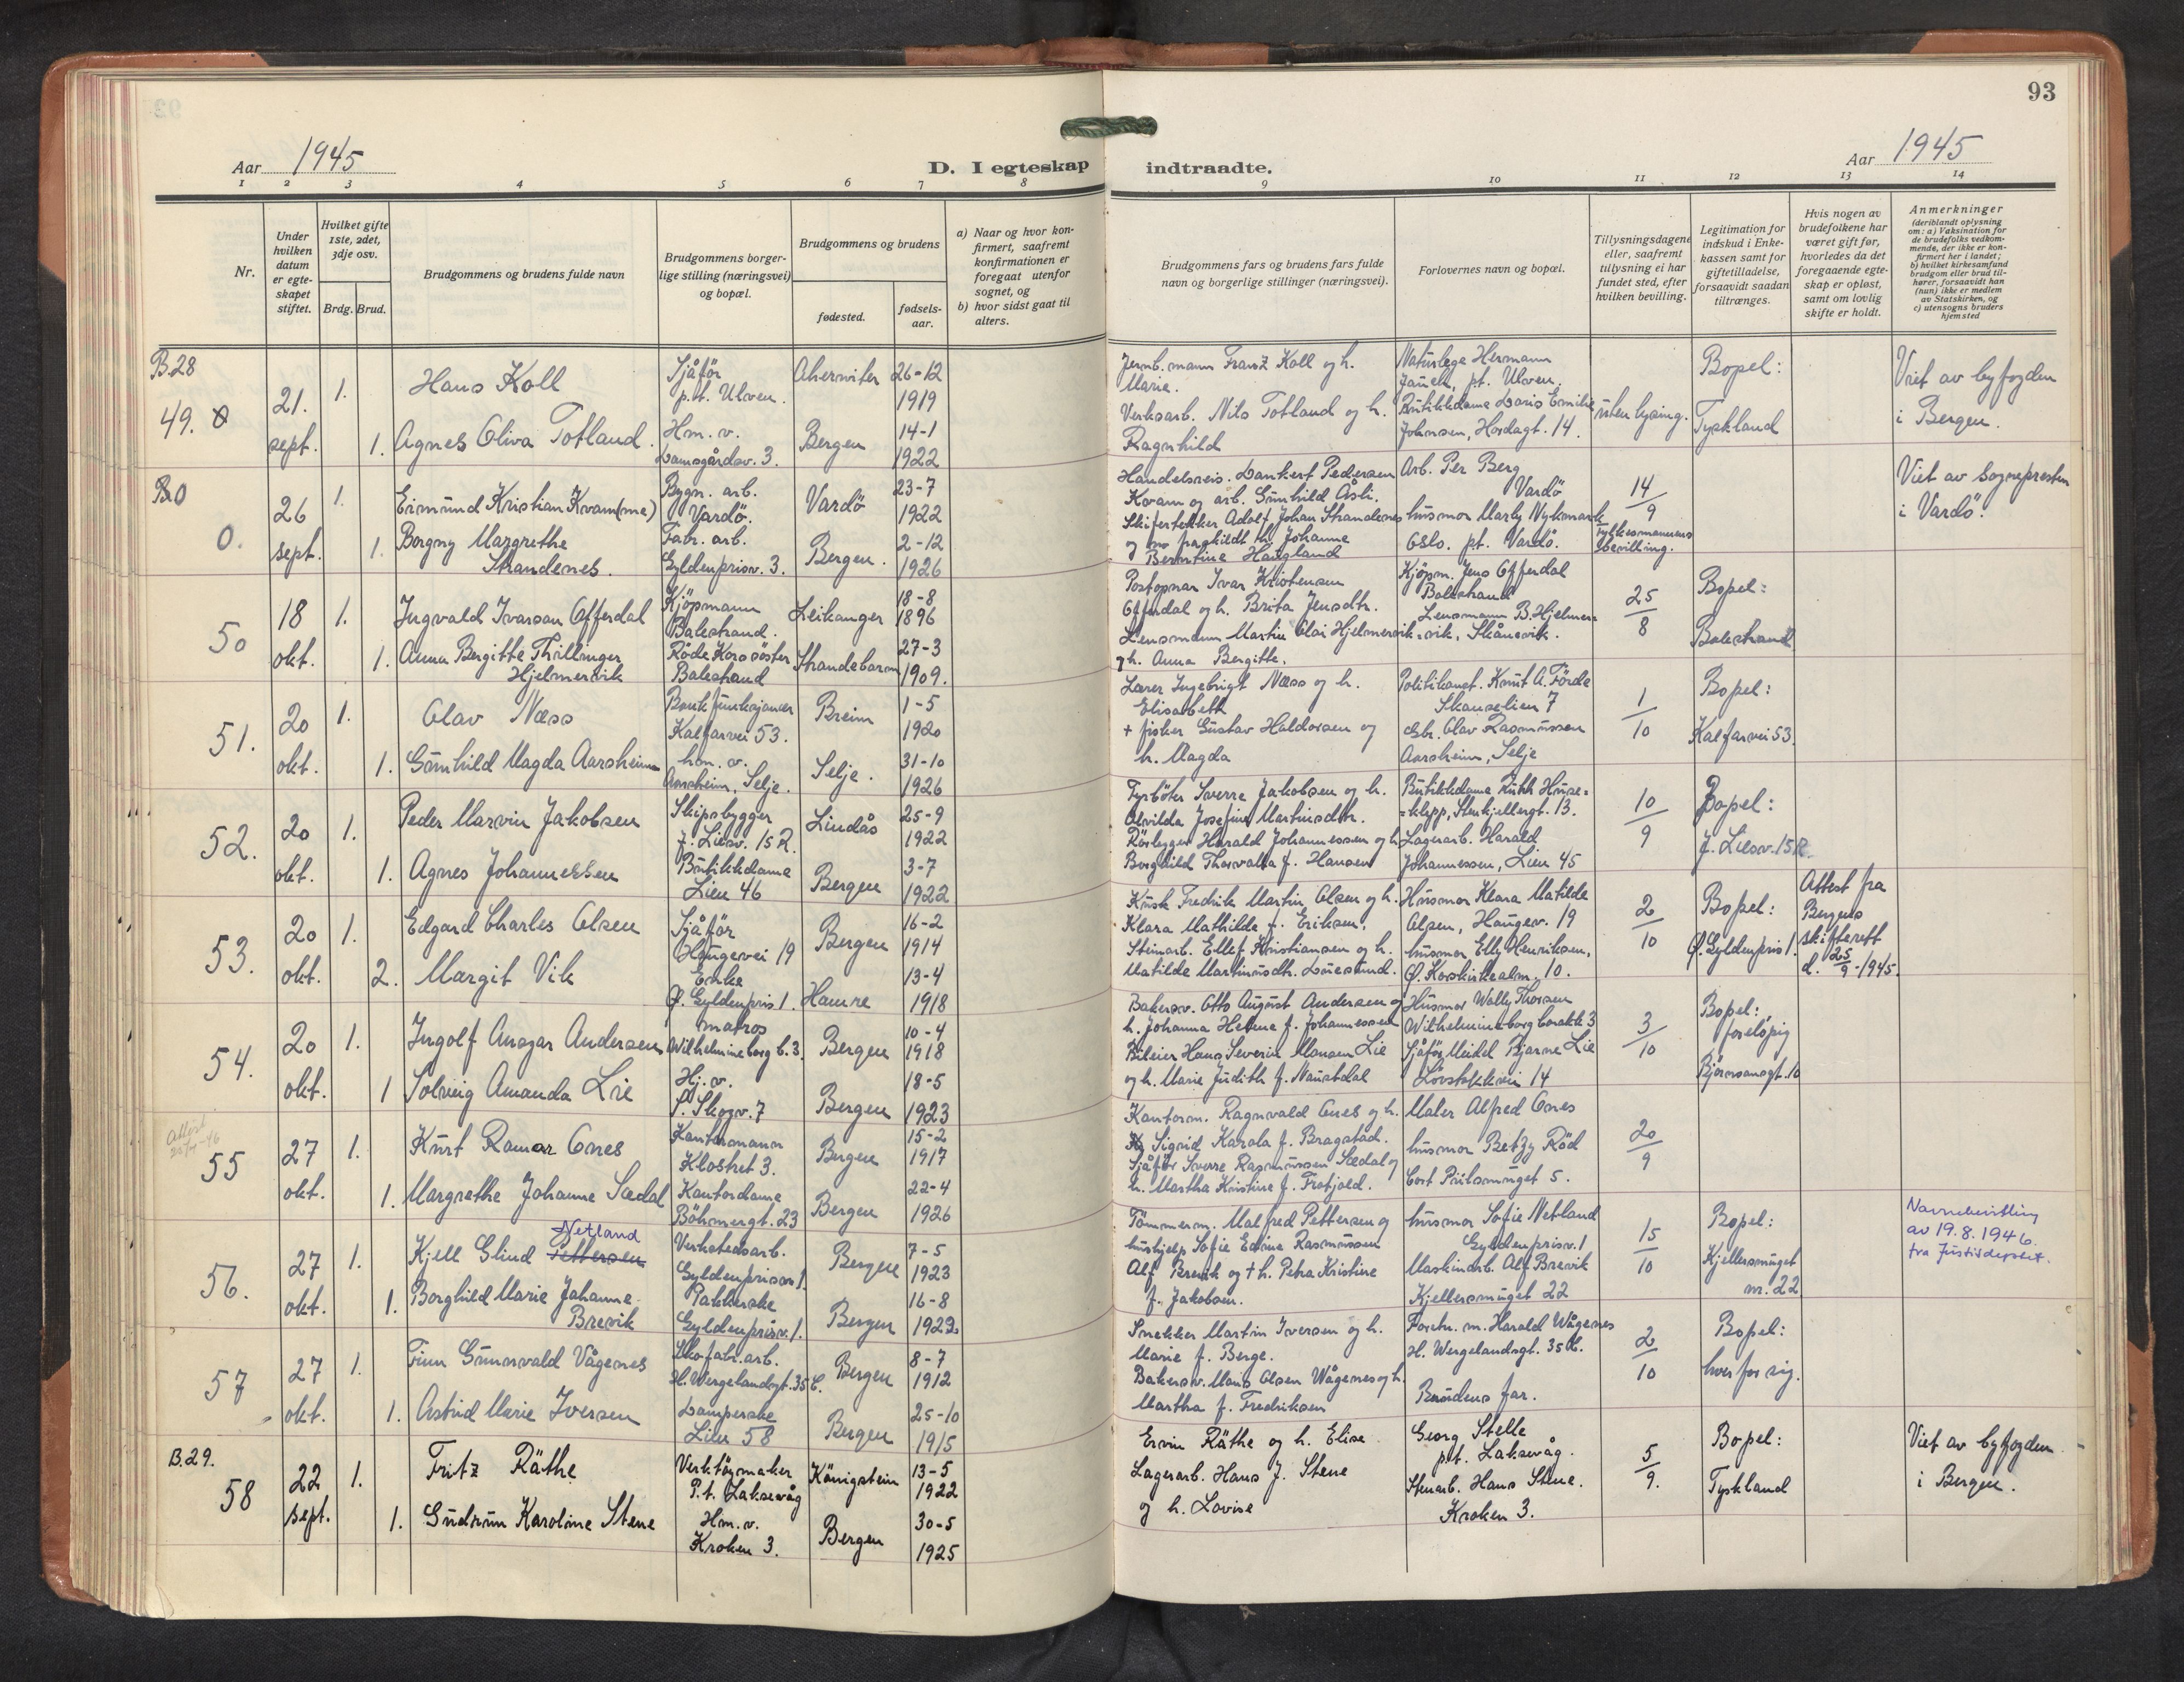 93
Aar 1945
D. I egteskap indtraadte.
Aar 1945
1 2 3 4 5 6 7 8 9 10 11 12 13 14
Nr.
Under hvilken datum er egteskapet stiftet.
Hvilket gifte 1ste, 2det, 3dje osv.
Brdg. Brud.
Brudgommens og brudens fulde navn
Brudgommens borgerlige stilling (næringsvei) og bopæl.
Brudgommens og brudens
fødested.
fødselsaar.
a) Naar og hvor konfirmert, saafremt konfirmationen er foregaat utenfor sognet, og
b) hvor sidst gaat til alters.
Brudgommens fars og brudens fars fulde navn og borgerlige stillinger (næringsvei).
Forlovernes navn og bopæl.
Tillysningsdagene eller, saafremt tillysning ei har fundet sted, efter hvilken bevilling.
Legitimation for indskud i Enkekassen samt for giftetilladelse, forsaavidt saadan tiltrænges.
Hvis nogen av brudefolkene har været gift før, hvorledes da det foregaaende egteskap er opløst, samt om lovlig skifte er holdt.
Anmerkninger
(deriblandt oplysning om: a) Vaksination for de brudefolks vedkommende, der ikke er konfirmert her i landet;
b) hvilket kirkesamfund brudgom eller brud tilhører, forsaavidt han (hun) ikke er medlem av Statskirken, og
c) utensogns bruders hjemsted
B.28
49.
21. sept.
1. Hans Koll
Sjåfør
p.t. Ulven.
26-12
1919
Jernb.mann Franz Koll og h.
Marie.
Naturlege Hermann
pt. Ulven.
1. Agnes Oliva Totland.
Hm. v.
Damsgårdsv. 3.
Bergen
14-1
1922
Verksarb. Nils Totland og h.
Ragnhild
Butikkdame Doris Emilie
Johnsen, Hordagt. 14.
uten lysing.
Bopel:
Tyskland
Viet av byfogden
i Bergen.
0.
26 sept.
1. Eimund Kristian Kvam(me)
Bygn. arb.
Vardö.
Vardö
23-7
1922
Handelsreis. Dankert Pedersen
Kvam og arb. Gunhild Åsli.
Arb. Per Berg
Vardö
1. Borgny Margrethe
Strandenes.
Fabr. arb.
Gyldenprisv. 3.
Bergen.
2-12
1926
Skifertekker Adolf Johan Strandenes
og fraskildt h. Johanne
Berntine Haugland
husmor Marly Nykmark
Oslo. pt. Vardö.
14/9
Fylkesmannens
bevilling.
Viet av sogneprosten
i Vardö.
50
18 okt.
1. Ingvald Ivarson Offerdal
Kjöpmann
Balestrand.
Leikanger
18-8
1896
Postopnar Ivar Kristensen
Offerdal og h. Brita Jensdtr.
Kjöpm. Jens Offerdal
Balestrand
1. Anna Bergitte Thillinger
Hjelmervik
Røde Kors søster
Balestrand
Strandebarm
27-3
1909.
Lensmann Martin Olai Hjelmervik
og h. Anna Bergitte.
Lensmann B. Hjelmer=
=vik, Skånevik.
25/8
Bopel:
Balestrand
51.
20 okt.
1. Olav Næss
Bankfunksjonær
Kalfarvei 53.
Breim
1-5
1920
Lærer Ingebrigt Næss og h.
Elisabeth
Politikonst. Knut A. Förde
Skanselien 7
1. Gunhild Magda Aarsheim
hm. v.
Aarsheim, Selje.
Selje.
31-10
1926
+ fisker Gustav Haldorsen og
h. Magda
Gbr. Olav Rasmussen
Aarsheim, Selje
1/10
Bopel:
Kalfarvei 53.
52.
20 okt.
1. Peder Marvin Jakobsen
Skipsbygger
J. Liesv. 15 R.
Lindås
25-9
1922
Fyrböter Sverre Jakobsen og h.
Alvilda Josefine Martinsdtr.
Butikkdame Ruth Huse=
=klepp, Stenkjellergt. 13.
1. Agnes Johannessen
Butikkdame
Lien 46
Bergen
3-7
1922
Rörlegger Harald Johannessen og h.
Borghild Thorvalda f. Hansen
Lagerarb. Harald
Johannessen, Lien 45
10/9
Bopel:
J. Liesv. 15R.
53.
20 okt.
1. Edgard Charles Olsen
Sjåför
Haugevei 19
Bergen
16-2
1914
Kusk Fredrik Martin Olsen og h.
Klara Mathilde f. Eriksen.
Husmor Klara Matilde
Olsen, Haugev. 19
2. Margit Vik
Enke
Ø. Gyldenpris 1.
Hamre
13-4
1918
Steinarb. Ellef Kristiansen og h.
Matilde Martinusdtr.
husmor Elly Henriksen,
Ø. Korskirkealm. 10.
2/10
Bopel:
Ø. Gyldenpris 1.
Attest fra
Bergens
skifterett
d. 25/9-1945.
54.
20 okt.
1. Ingolf Ansgar Andersen
matros
Wilhelmineborg b. 3.
Bergen
10-4
1918
Bakersv. Otto August Andersen og
h. Johanna Helene f. Johannessen
Husmor Wally Thorsen
Wilhelmineborg barakk 3
1 Solveig Amanda Lie
Hj. v.
S. Skogv. 7
Bergen
18-5
1923
Bileier Hans Severin Monsen Lie
og h. Marie Judith f. Naustdal
Sjåför Meidel Bjarne Lie
Lövstakkvei 14
3/10
Bopel:
foreløpig
Björnsonsgt. 10
Attest
55
27 okt.
1. Kurt Ramar Ones
Kontormann
Klostret 3.
Bergen
15-2
1917
Kontorm. Ragnvald Ones og h.
Sigrid Karola f. Bragstad.
Maler Alfred Ones
1. Margrethe Johanne Sædal
Kontordame
Böhmergt. 23
Bergen
22-4
1926
Sjåför Sverre Rasmussen Sædal og
h. Martha Kristine f. Frotjold.
husmor Betzy Röd
Cort Piilsmuget 5.
20/9
56.
27 okt.
1. Kjell Glind Pettersen
Netland
Verkstedsarb.
Gyldenprisv. 1.
Bergen
7-5
1923
Tömmerm. Malfred Pettersen og
hushjelp Sofie Edine Rasmussen
husmor Sofie Netland
Gyldenprisv. 1
1. Borghild Marie Johanne
Brevik
Pakkerske
Gyldenprisv. 1.
Bergen
16-8
1922.
Alf Brevik og + h. Petra Kristine
f. Jakobsen.
Maskinarb. Alf Brevik
Kjellersmuget 22
15/10
Bopel:
Kjellersmuget
nr. 22
Navnebevilling
av 19.8.1946.
fra Justisdeptet.
57
27 okt.
1. Finn Gunnvald Vågenes
Skofabr.arb.
H. Wergelandsgt. 35 b.
Bergen
8-7
1912
Snekker Martin Iversen og h.
Marie f. Berge.
Forstn. m. Harald Wågenes
H. Wergelandsgt. 35 b.
1. Astrid Marie Iversen
Damperske
Lien 58
Bergen
25-10
1915
Bakersv. Mons Olsen Wågenes og h.
Martha f. Fredriksen
Brudens far.
2/10
Bopel:
hver for sig.
B.29.
58
22 sept.
1. Fritz Räthe
Verktöymaker
P.t. Laksevåg
Königstein
13-5
1922
Ervin Räthe og h. Elise
Georg Stelle
p.t. Laksevåg.
1. Gudrun Karoline Stene
Hm. v.
Kroken 3.
Bergen
30-5
1925
Lagerarb. Hans J. Stene
og h. Lovise
Stenarb. Hans Stene.
Kroken 3.
5/9.
Bopel:
Tyskland
Viet av byfogden
i Bergen.